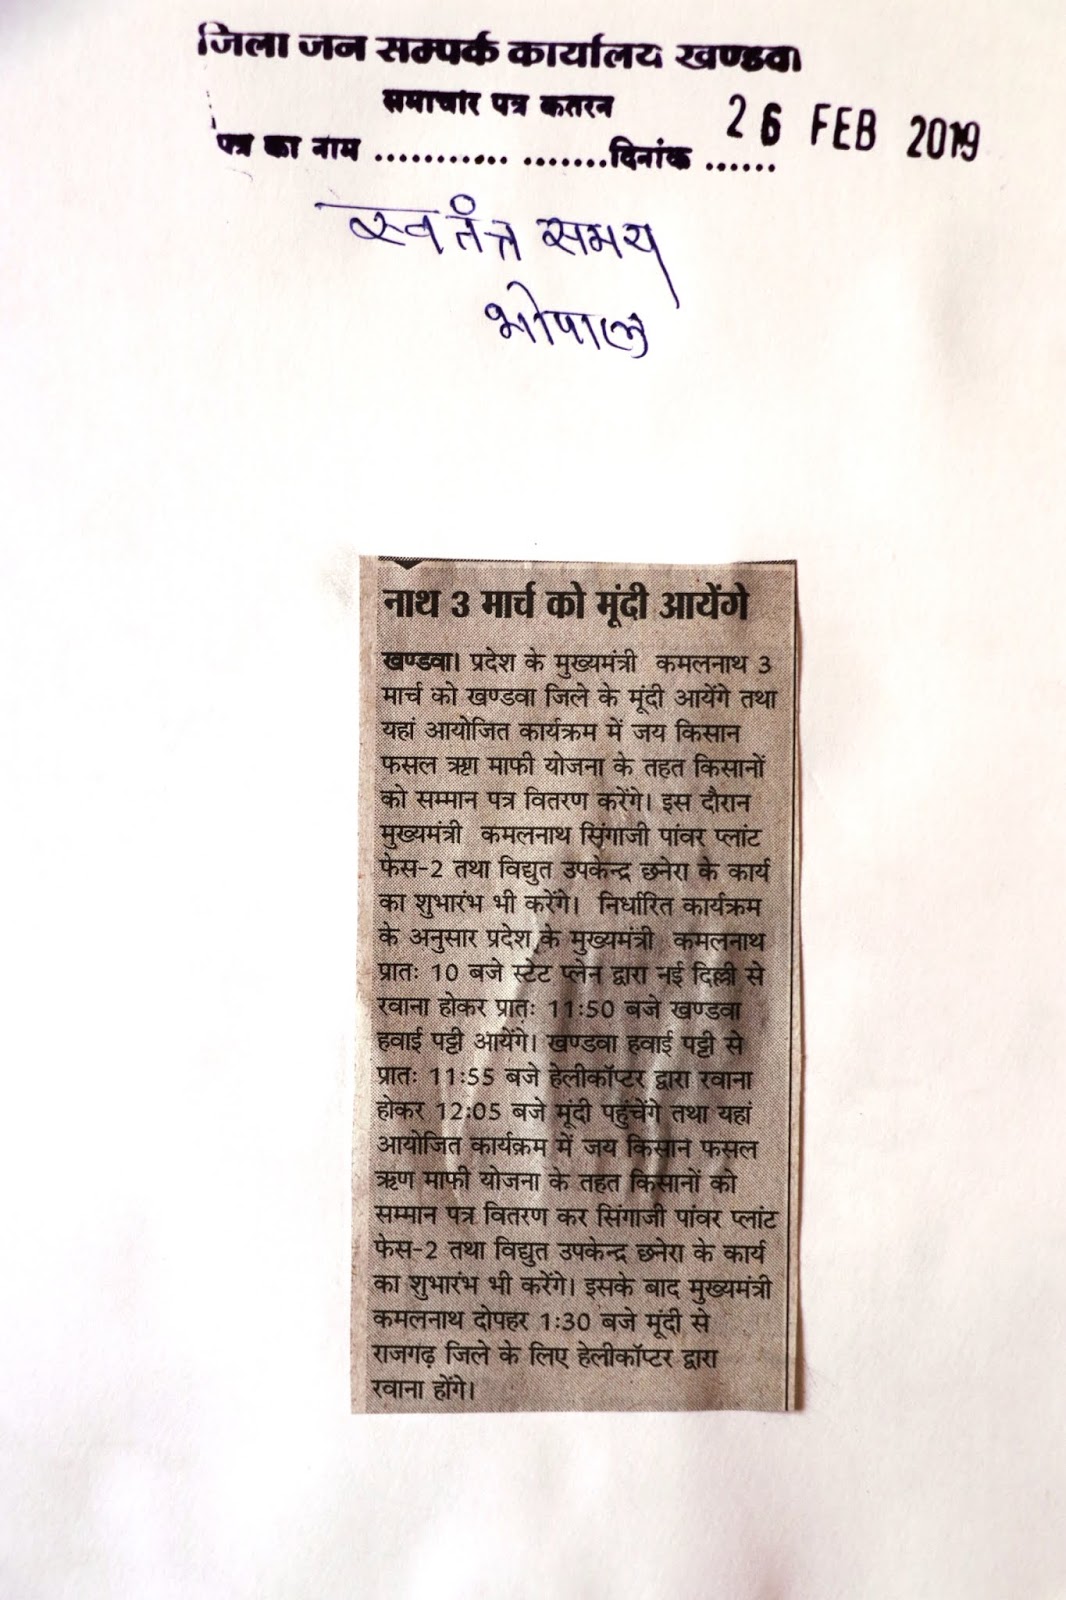 जिला जन सम्पर्क कार्यालय खण्डवा
समाचार पत्र कतरन
26 FEB 2019
पत्र का नाम ........... .......दिनांक ......
स्वतंत्र समय
भोपाल
नाथ 3 मार्च को मूंदी आयेंगे
खण्डवा। प्रदेश के मुख्यमंत्री कमलनाथ 3
मार्च को खण्डवा जिले के मूंदी आयेंगे तथा
यहां आयोजित कार्यक्रम में जय किसान
फसल ऋण माफी योजना के तहत किसानों
को सम्मान पत्र वितरण करेंगे। इस दौरान
मुख्यमंत्री कमलनाथ सिंगाजी पांवर प्लांट
फेस-2 तथा विद्युत उपकेन्द्र छनेरा के कार्य
का शुभारंभ भी करेंगे। निर्धारित कार्यक्रम
के अनुसार प्रदेश के मुख्यमंत्री कमलनाथ
प्रातः 10 बजे स्टेट प्लेन द्वारा नई दिल्ली से
रवाना होकर प्रातः 11:50 बजे खण्डवा
हवाई पट्टी आयेंगे। खण्डवा हवाई पट्टी से
प्रातः 11:55 बजे हेलीकॉप्टर द्वारा रवाना
होकर 12:05 बजे मूंदी पहुंचेंगे तथा यहां
आयोजित कार्यक्रम में जय किसान फसल
ऋण माफी योजना के तहत किसानों को
सम्मान पत्र वितरण कर सिंगाजी पांवर प्लांट
फेस-2 तथा विद्युत उपकेन्द्र छनेरा के कार्य
का शुभारंभ भी करेंगे। इसके बाद मुख्यमंत्री
कमलनाथ दोपहर 1:30 बजे मूंदी से
राजगढ़ जिले के लिए हेलीकॉप्टर द्वारा
रवाना होंगे।